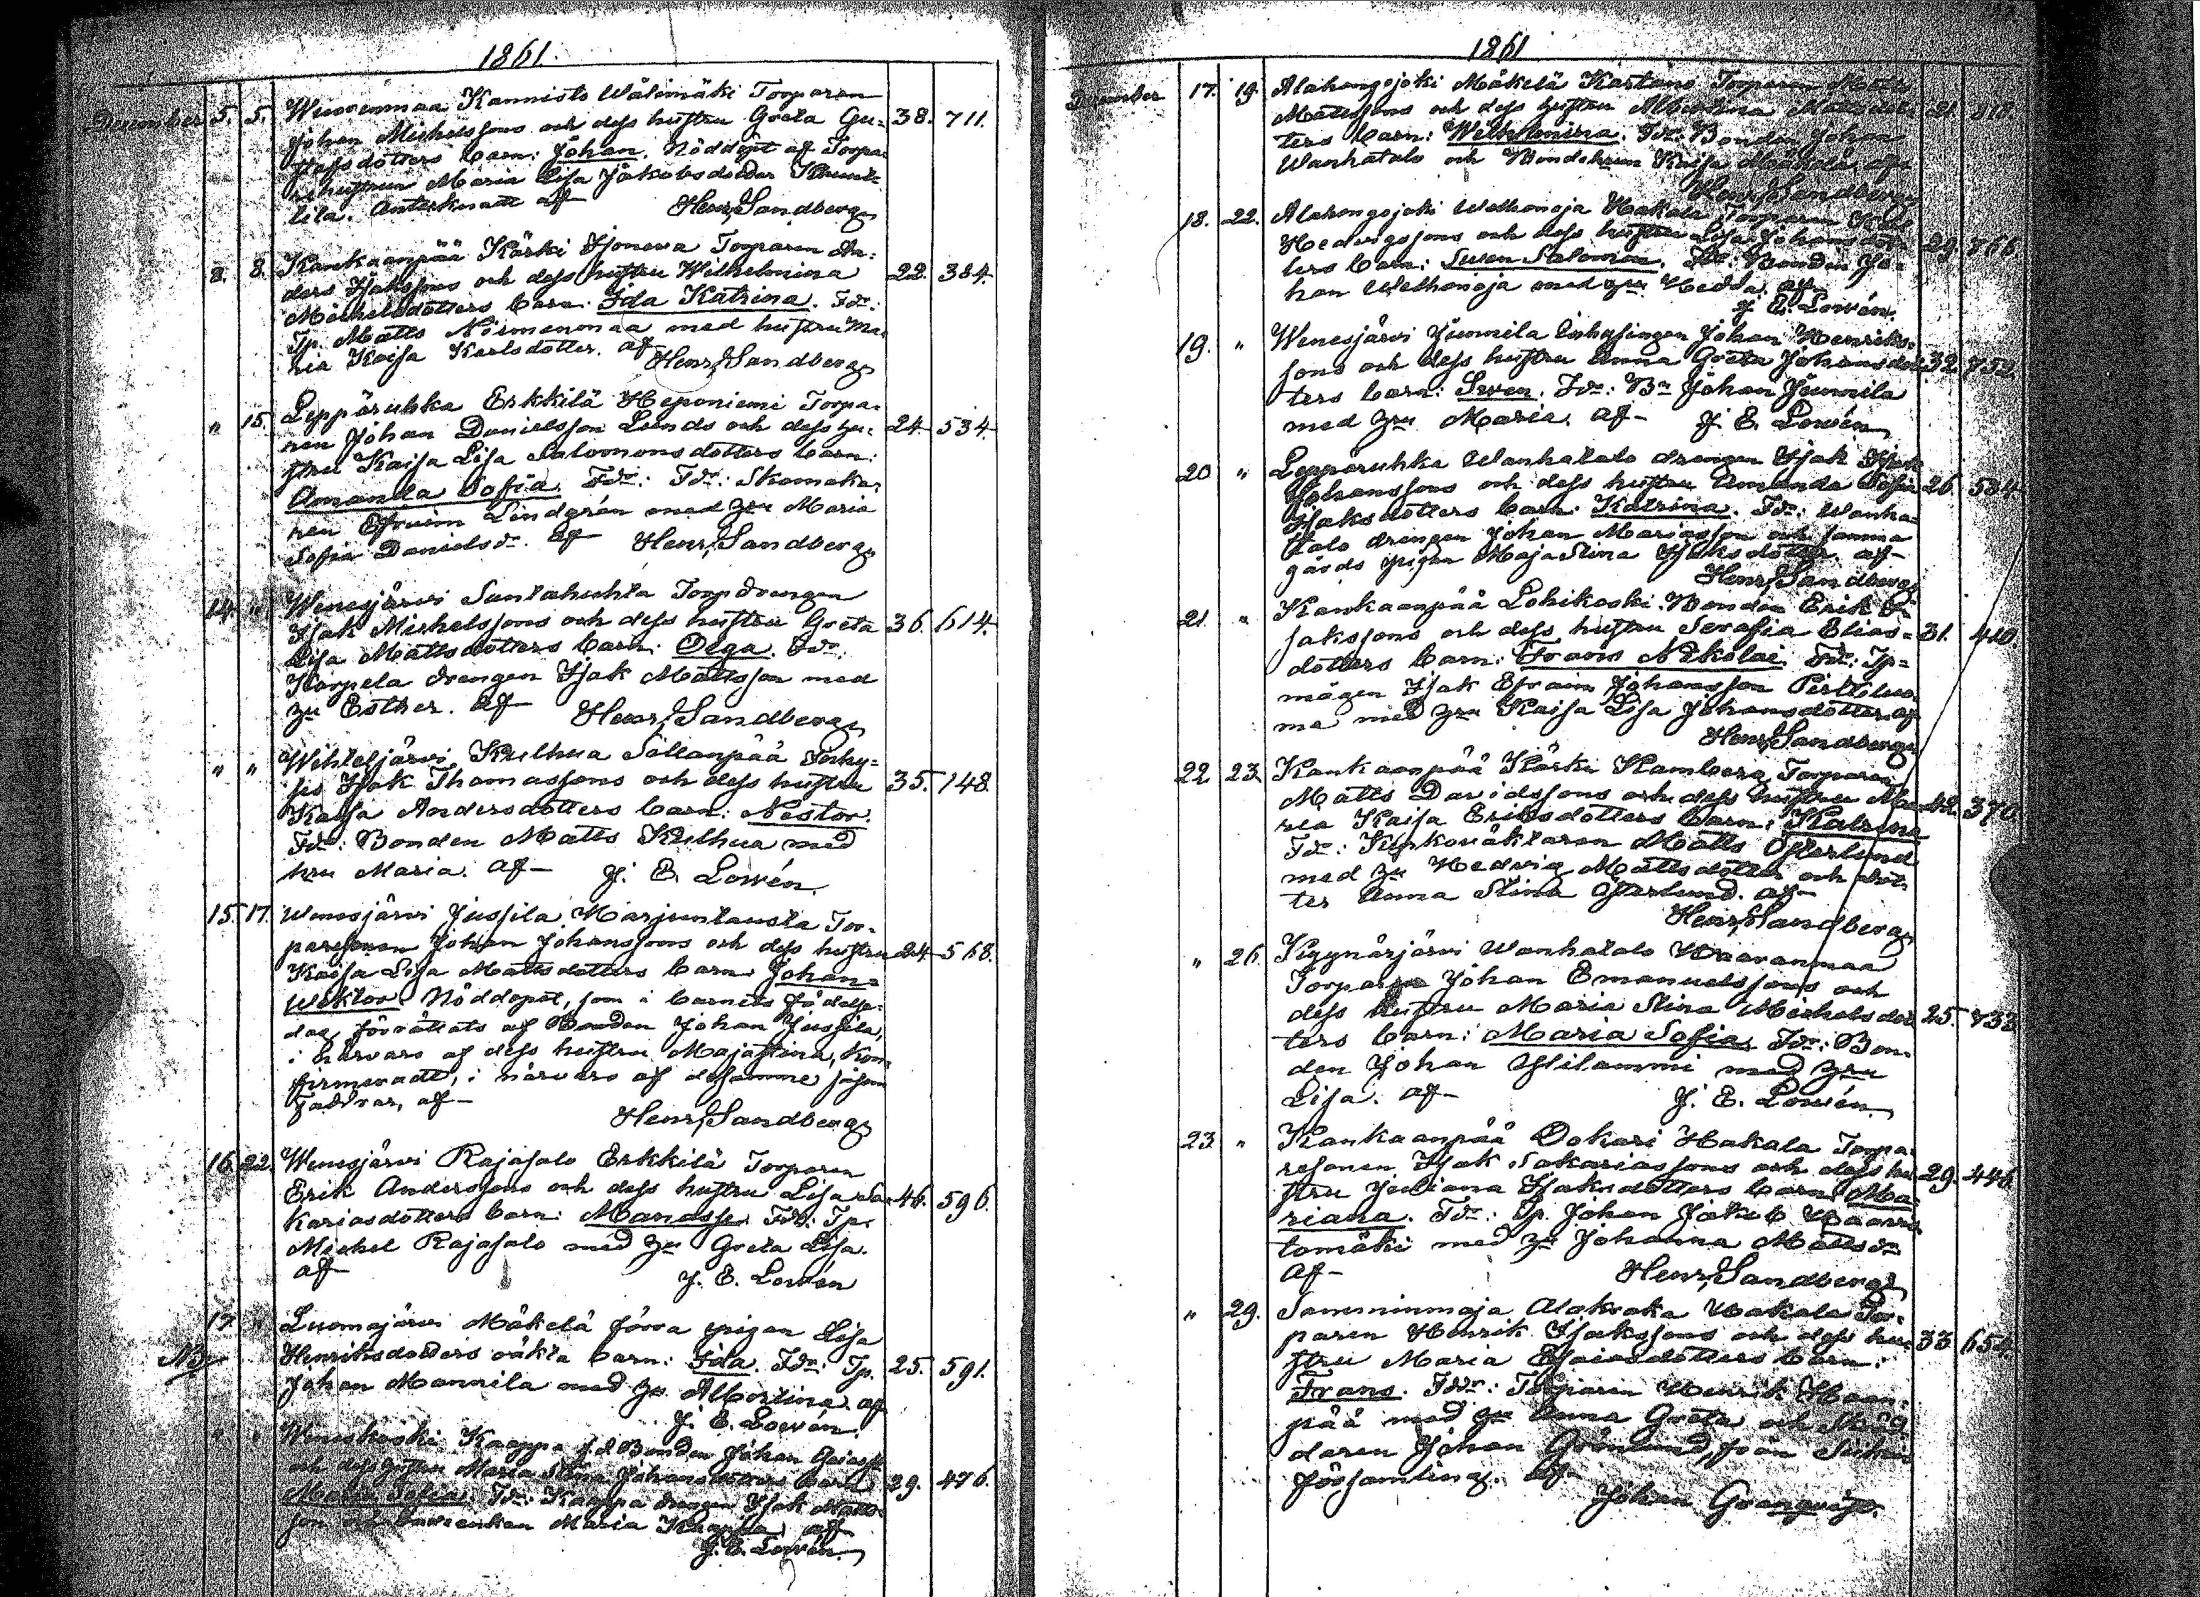 1861.
December 5. 5. Wuorenmaa Kannisto Wälimäki Torparen
Johan Michelssons och dess hustru Greta Gu= 38. 711.
stafsdotters barn: Johan. Nöddöpt af Torpa=
rehustrun Maria Lisa Jakobsdotter
Anteknadt af Henr. Sandberg
8. 8. Kankaanpää Kärki Torparen An=
ders Isakssons och dess hustru Wilhelmina 22. 384.
Michelsdotters barn: Ida Katrina. Fdr:
Tp. Matts med hustru Ma=
ria Kaisa Karlsdotter. af
Henr. Sandberg
" 15. Leppäruhka Erkkilä Heponiemi Torpa=
ren Johan Danielsson Lunds och dess hu= 24. 534.
stru Kaisa Lisa Salomonsdotters barn:
Amanda Sofia. Fdr: Fdr: Skomaka=
ren Efraim Lindgrén med hru Maria
Sofia Danielsdr. af Henr. Sandberg
14. " Wenesjärvi Santahuhta Torpdrengen
Isak Michelssons och dess hustru Greta 36. 614.
Lisa Mattsdotters barn: Olga. Fdr:
Karpela drengen Isak Mattsson med
hu Esther. af Henr. Sandberg
" " Wihteljärvi Krelhua Sillanpää Inhy=
ses Isak Thomassons och dess hustru 35. 148.
Kaisa Andersdotters barn: Nestor.
Fdr: Bonden Matts Krelhua med
hru Maria. af J. E. Lowén.
15. 17. Wenesjärvi Jussila Marjuntausta Tor=
paresonen Johan Johanssons och dess hustru 24 568.
Kaisa Lisa Mattsdotters barn Johan=
Wiktor. Nöddöpt, som i barnets födelse=
dag förrättats af Bonden Johan Jussila,
i närvaro af dess hustru Majastina, kon=
firmeradt, i närvaro af desamme såsom
Faddrar, af
Henr. Sandberg
16. 22. Wenesjärvi Rajasalo Erkkilä Torparen
Erik Anderssons och dess hustru Lisa Sa= 46. 596.
kariasdotters barn: Manasse. Fdr: Tp.
Michel Rajasalo med hu Greta Lisa.
af J. E. Lowén
17. " Luomajärvi Mäkelä förra pigan Lisa
NB Henriksdotters oäkta barn: Ida. Fdr: Tp. 25. 591.
Johan Mannila med hu Albertina. af
J. E. Lowén.
" " Weneskoski Kaappa f.d. Bonden Johan
och dess hustru Maria Stina Johansdotters barn 29. 476.
Maria Sofia. Fdr: Kaappa drengen Isak Matts=
son och Maria Kaappa, af
J. E. Lowén.
1861
December 17. 19. Alahongojoki Mäkelä Torparen Matts
Mattssons och dess hustru Albertina 21.
ters barn: Wilhelmina. Fdr: Bonden Johan
Wanhatalo och Bondehrun Kaisa Mäkelä, af
Henr. Sandberg
18. 22. Alahongojoki Welhonoja Hakala Torparen
Hedvigssons och dess hustru Lisa Johansdot= 29. 766.
ters barn: Swen Salomon. Fdr: Bonden Jo=
han Welhonoja med hru Hedda. af
J. E. Lowén.
19. " Wenesjärvi Junnila Inhysingen Johan Henriks=
sons och dess hustru Anna Greta Johansdot= 32. 752.
ters barn: Swen. Fdr: Bn Johan Junnila
med hru Maria. af J. E. Lowén
20 " Leppäruhka Wanhatalo drengen Isak
Johanssons och dess hustru Amanda Sofia 26. 534.
Isaksdotters barn: Katrina. Fdr: Wanha=
talo drengen Johan Mariasson och samma
gårds pigan Maja Stina Isaksdotter. af
Henr. Sandberg
21. " Kankaanpää Lohikoski Bonden Erik I=
sakssons och dess hustru Serafia Elias= 31. 410.
dotters barn: Frans Nikolai. Fdr: Tp=
mågen Isak Efraim Johansson
ma med hru Kaisa Lisa Johansdotter. af
Henr. Sandberg
22 23. Kankaanpää Kärki Kambera Torparen
Matts Davidssons och dess hustru Ma= 42. 370
ria Kaisa Eriksdotters barn: Katrina
Fdr: Kyrkoväktaren Matts Österlund
med hu Hedvig Mattsdotter och dot=
ter Anna Stina Österlund. af
Henr. Sandberg
" 26. Kyynärjärvi Wanhatalo Waaranmaa
Torparen Johan Emanuelssons och
dess hustru Maria Stina Michelsdot= 25. 733
ters barn: Maria Sofia. Fdr: Bon=
den Johan Ylilammi med hru
Lisa. af J. E. Lowén.
23. " Kankaanpää Ookari Hakala Torpa=
resonen Isak Sakariassons och dess hu= 29. 446.
stru Juliana Isaksdotters barn Ma=
riana. Fdr: Tp. Johan Jakob
tomäki med hu Johanna Mattsdr
af Henr. Sandberg
" 29. Samminmaja Alakraka Hakala Tor=
paren Henrik Isakssons och dess hu= 33 654.
stru Maria Esaiasdotters barn:
Frans. Fdr: Torparen Henrik Haan=
pää med hu Anna Greta och Skräd=
daren Johan Grönlund, från
församling. af
Johan Granqvist.